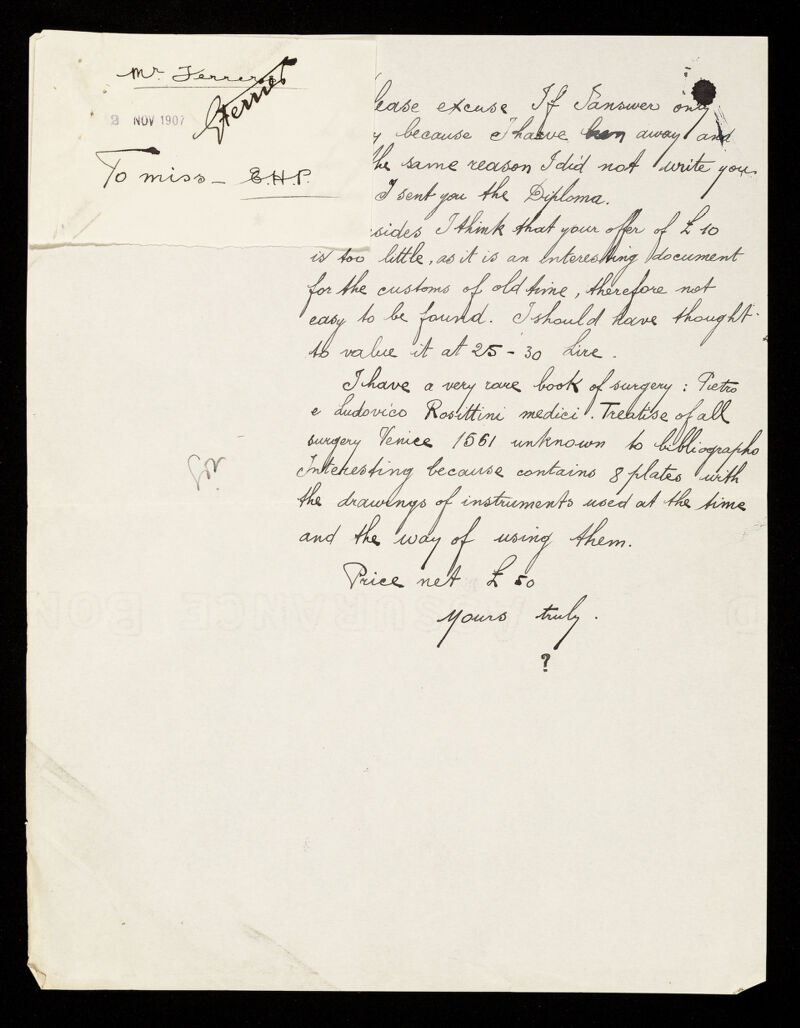 Mr. Ferrer
GFerrier
2 NOV 1907
To miss - E.H.P.
lease excuse If I answer only
y because I haeve been away and
he same reason I did not write you
I sent you the Diploma.
sides I think that your offer of £ 10
is too little, as it is an interesting document
for the customs of old time, therefore not
easy to be found. I should have thought
to value it at 25 - 30 Lire.
I have a very rare book of surgery: Pietro
e Ludovico Rosittini medici. Treatise of all
surgery Venice 1561 unknown to bibliographs
Interesting because contains 8 plates with
the drawings of instruments used at the time
and the way of using them.
Price net £ 50
yours truly.
?
SURANCE BON